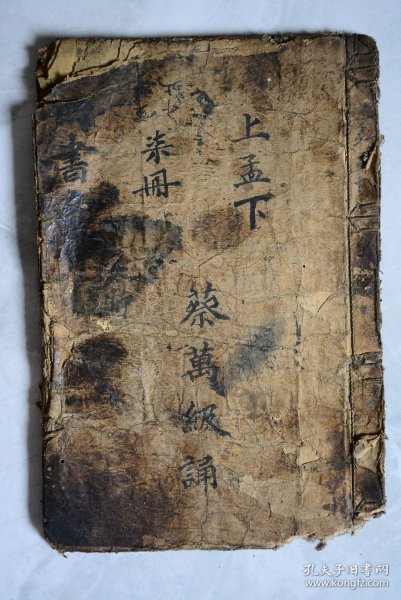 上孟下
蔡萬級誦
柒冊
書
孔夫子旧书网
www.kongfz.com